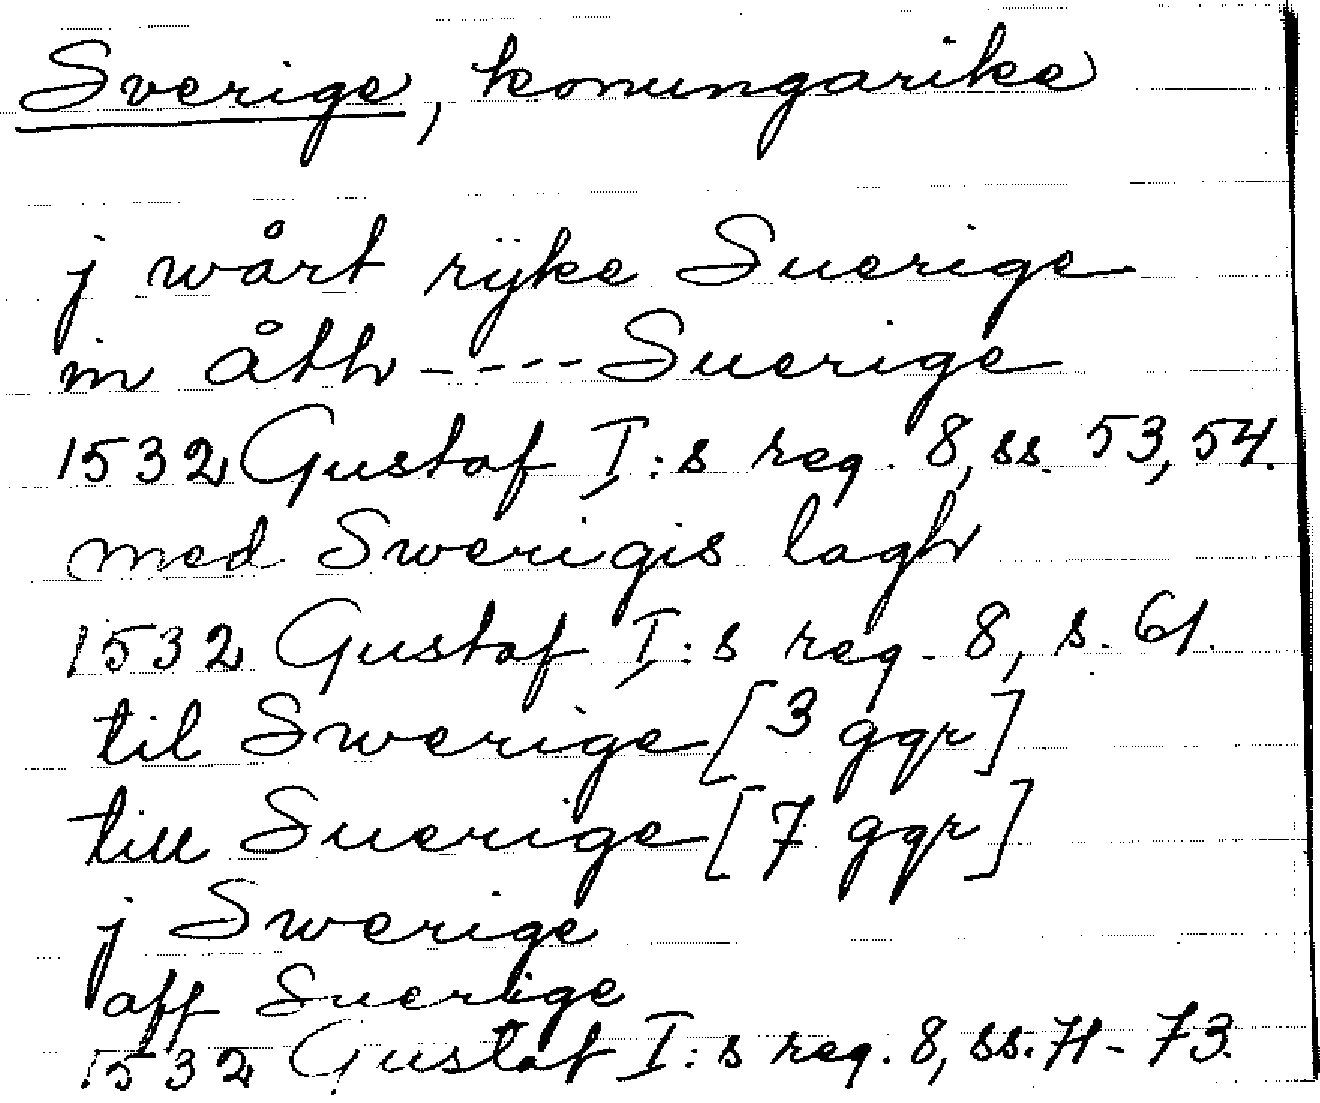 Sverige, konungarike
j wårt rÿke Suerige
in åth ---- Suerige
1532 Gustaf I:s reg. 8, ss. 53, 54.
med Swerigis lagh
1532 Gustaf I:s reg. 8, s. 61.
til Swerige [3 ggr]
till Suerige [7 ggr]
j Swerige
aff Suerige
1532 Gustaf I:s reg. 8, ss. 71-73.